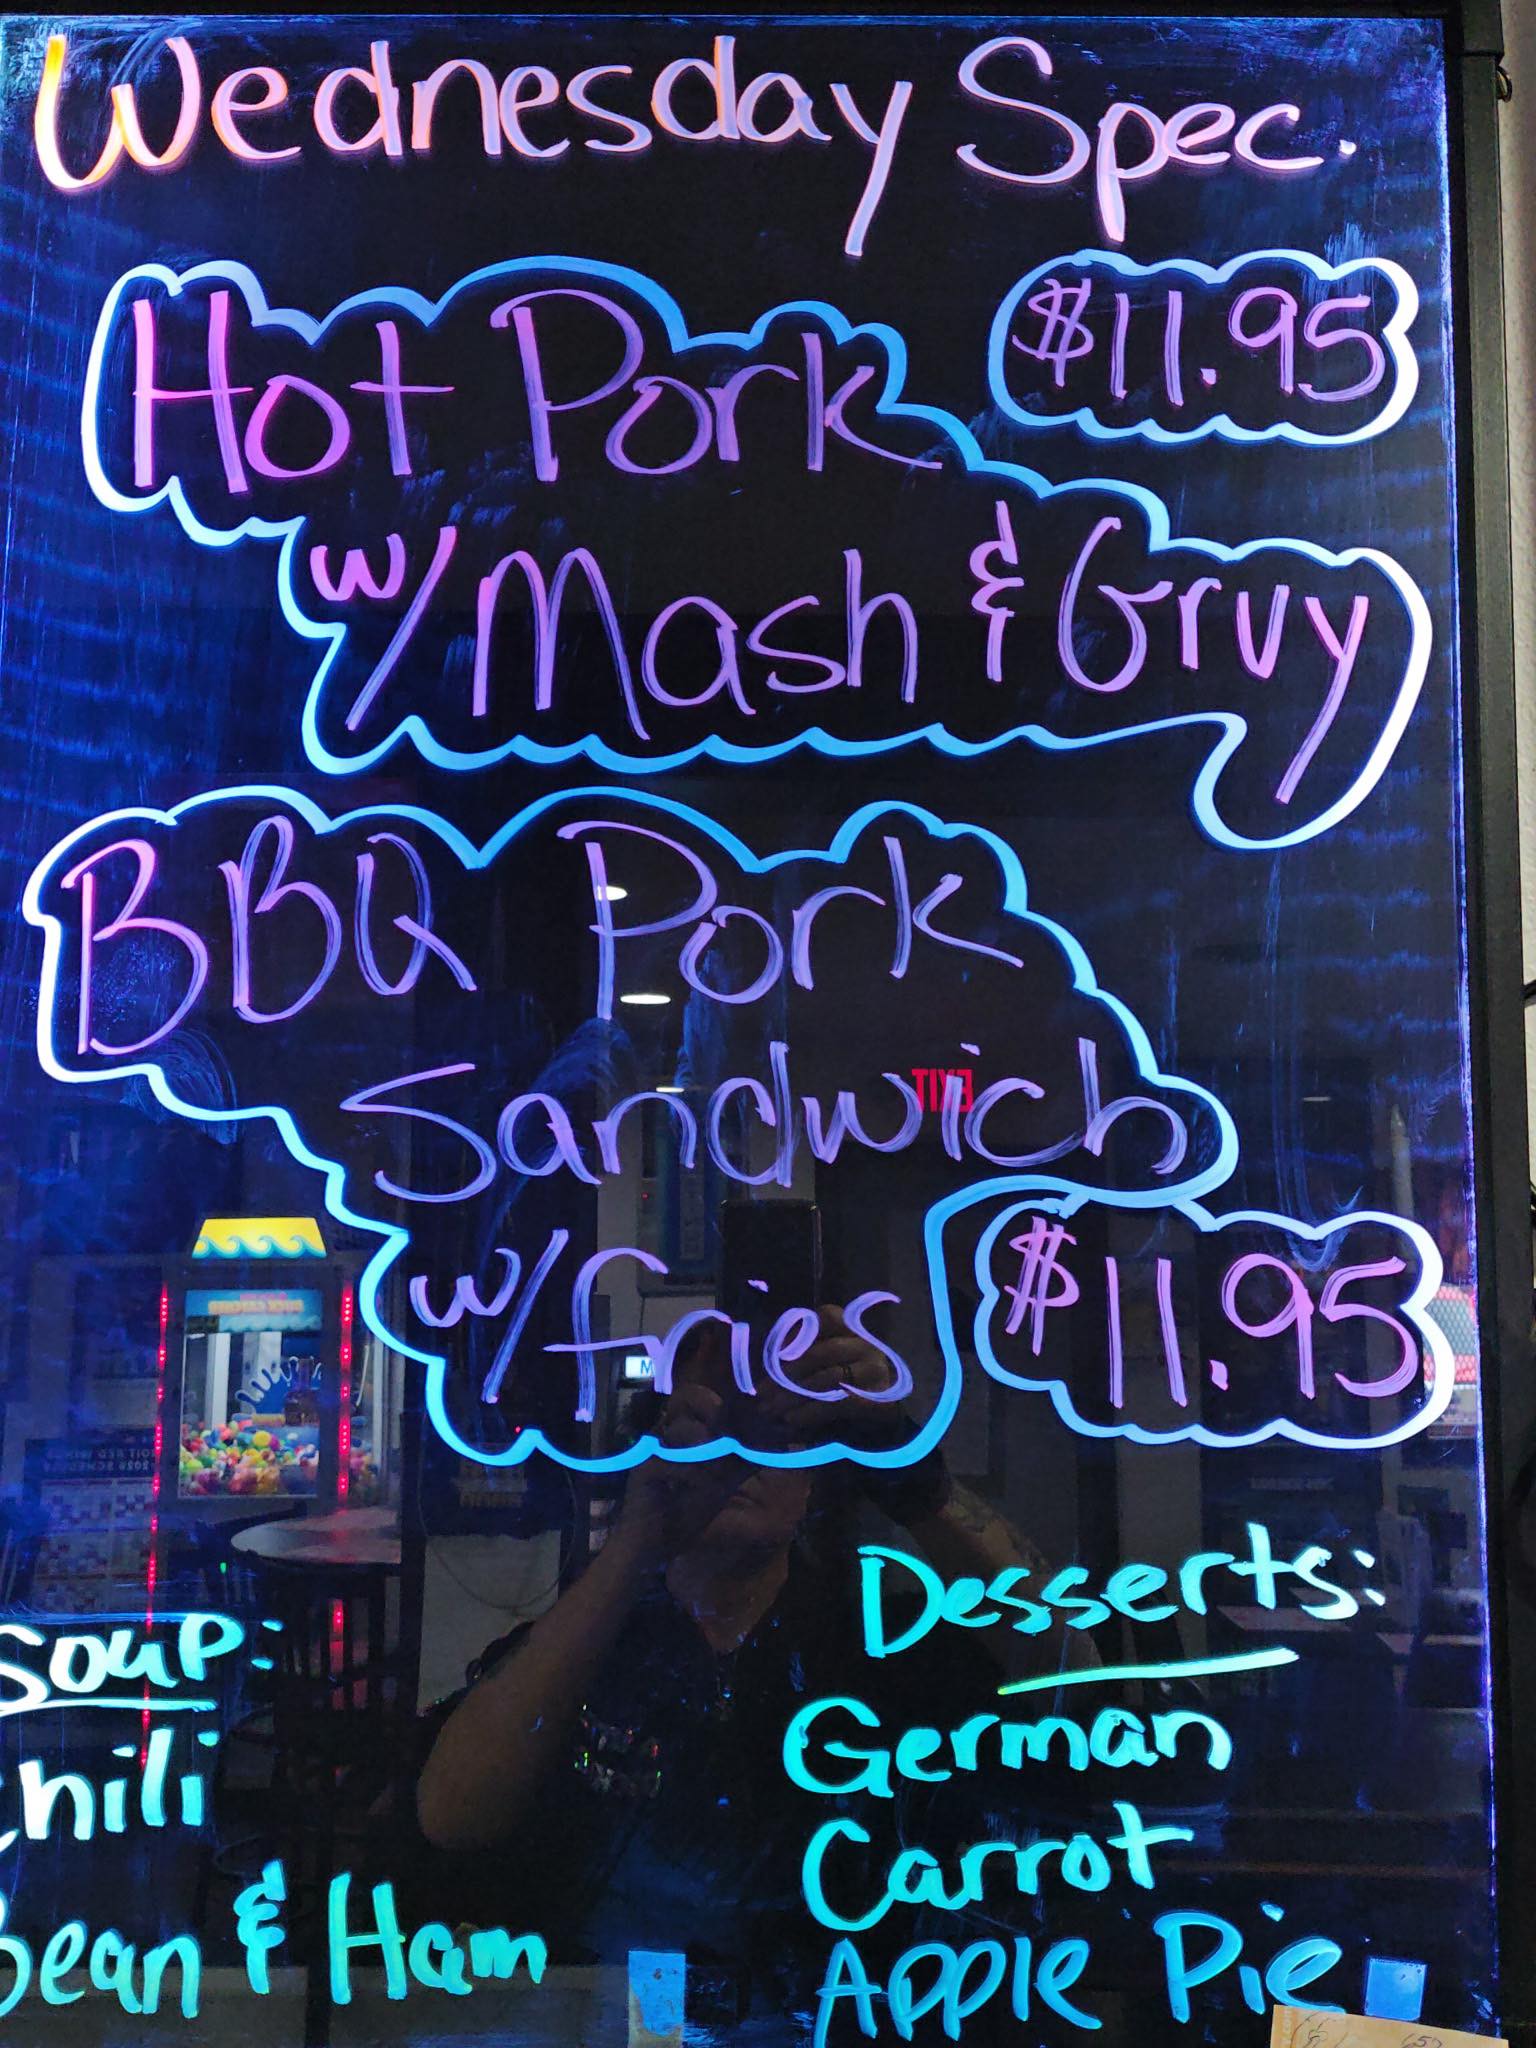 Wednesday Spec.
Hot Pork $11.95
w/ Mash & Grvy
BBQ Pork
Sandwich
w/ fries $11.95
Soup:
Chili
Bean & Ham
Desserts:
German
Carrot
Apple Pie
EXIT